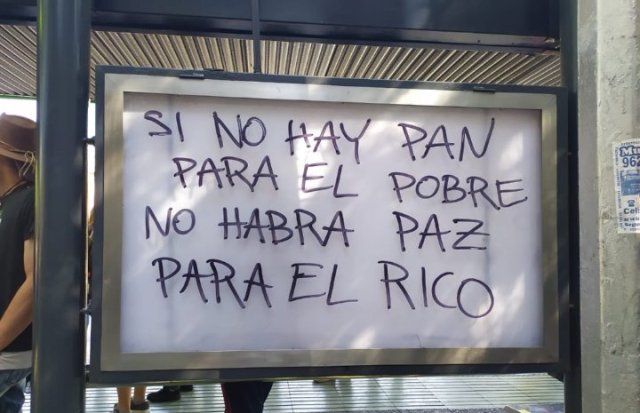 SI NO HAY PAN
PARA EL POBRE
NO HABRA PAZ
PARA EL RICO
962
Celi